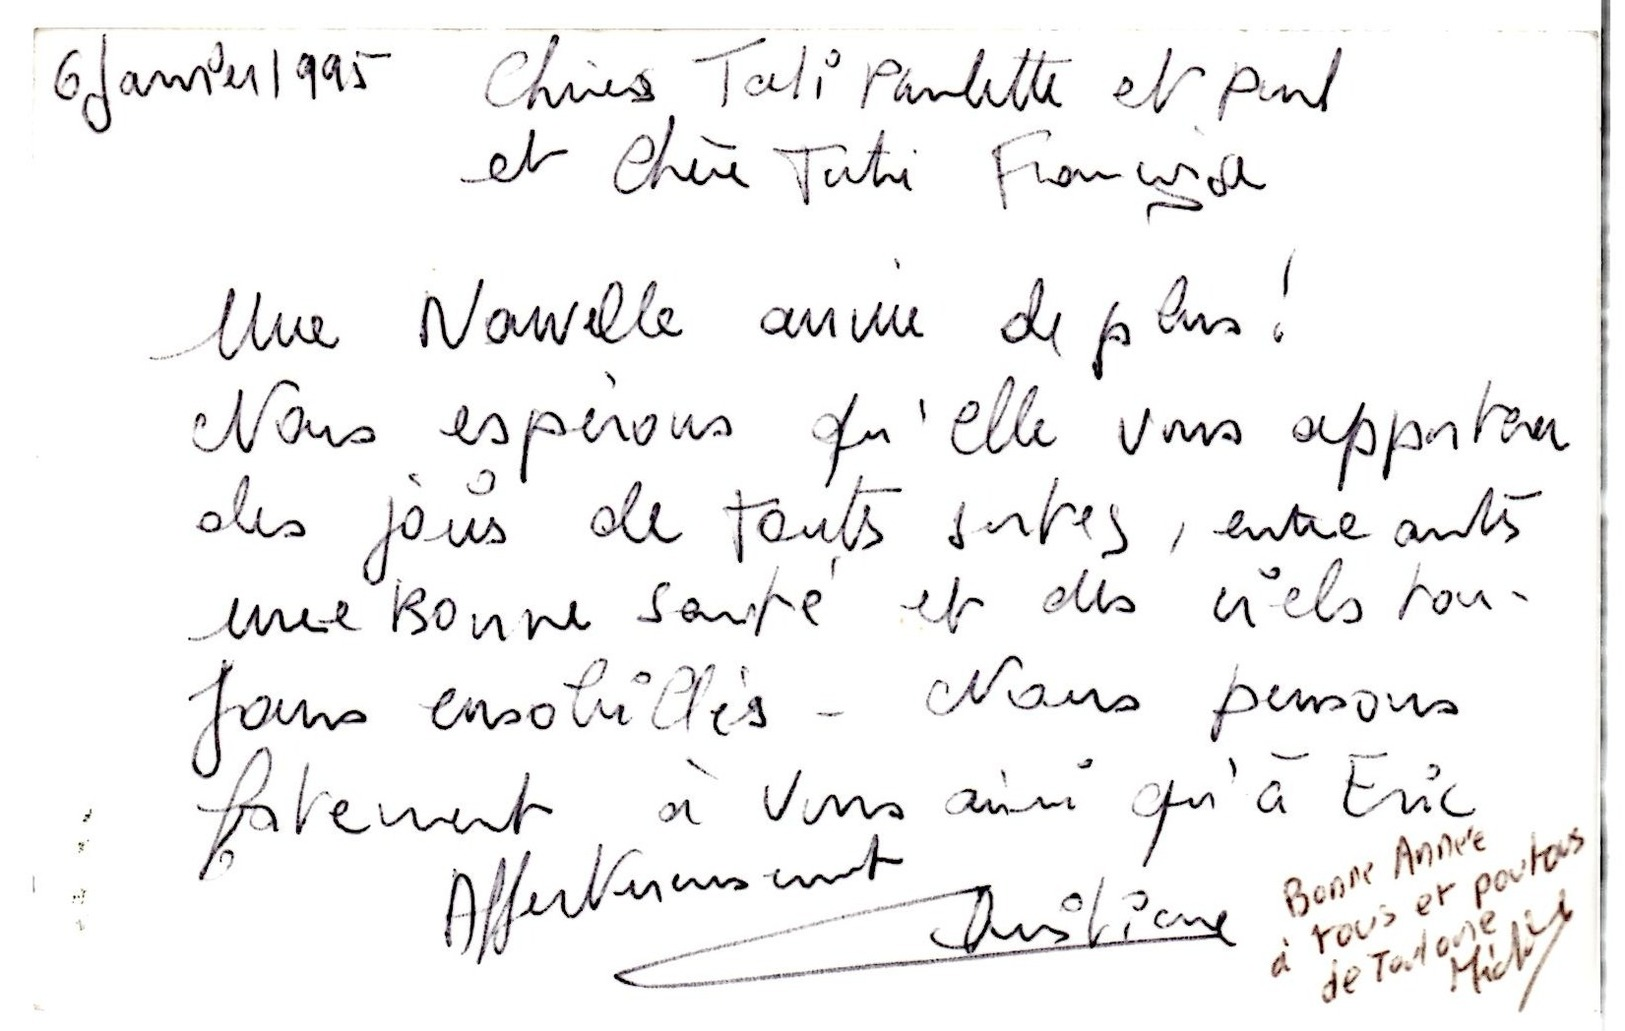 6 Janvier 1995
Chers Tati Paulette et Paul
et Chère Tati Françoise
Une Nouvelle année de plus !
Nous espérons qu'elle vous apportera
des jours de toutes sortes, entre autres
une Bonne santé et des ciels tou-
jours ensoleillés - Nous pensons
fortement à vous ainsi qu'à Eric
Affectueusement
Christiane
Bonne Année
à tous et poutous
de Toulouse
Michel